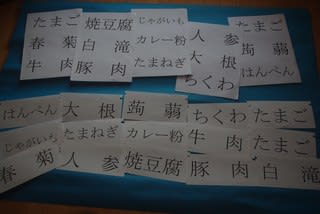 たまご
春菊
牛肉
焼豆腐
白滝
豚肉
じゃがいも
カレー粉
たまねぎ
人参
大根
ちくわ
たまご
蒟蒻
はんぺん
はんぺん
大根
蒟蒻
ちくわ
たまご
じゃがいも
たまねぎ
カレー粉
牛肉
たまご
春菊
人参
焼豆腐
豚肉
白滝